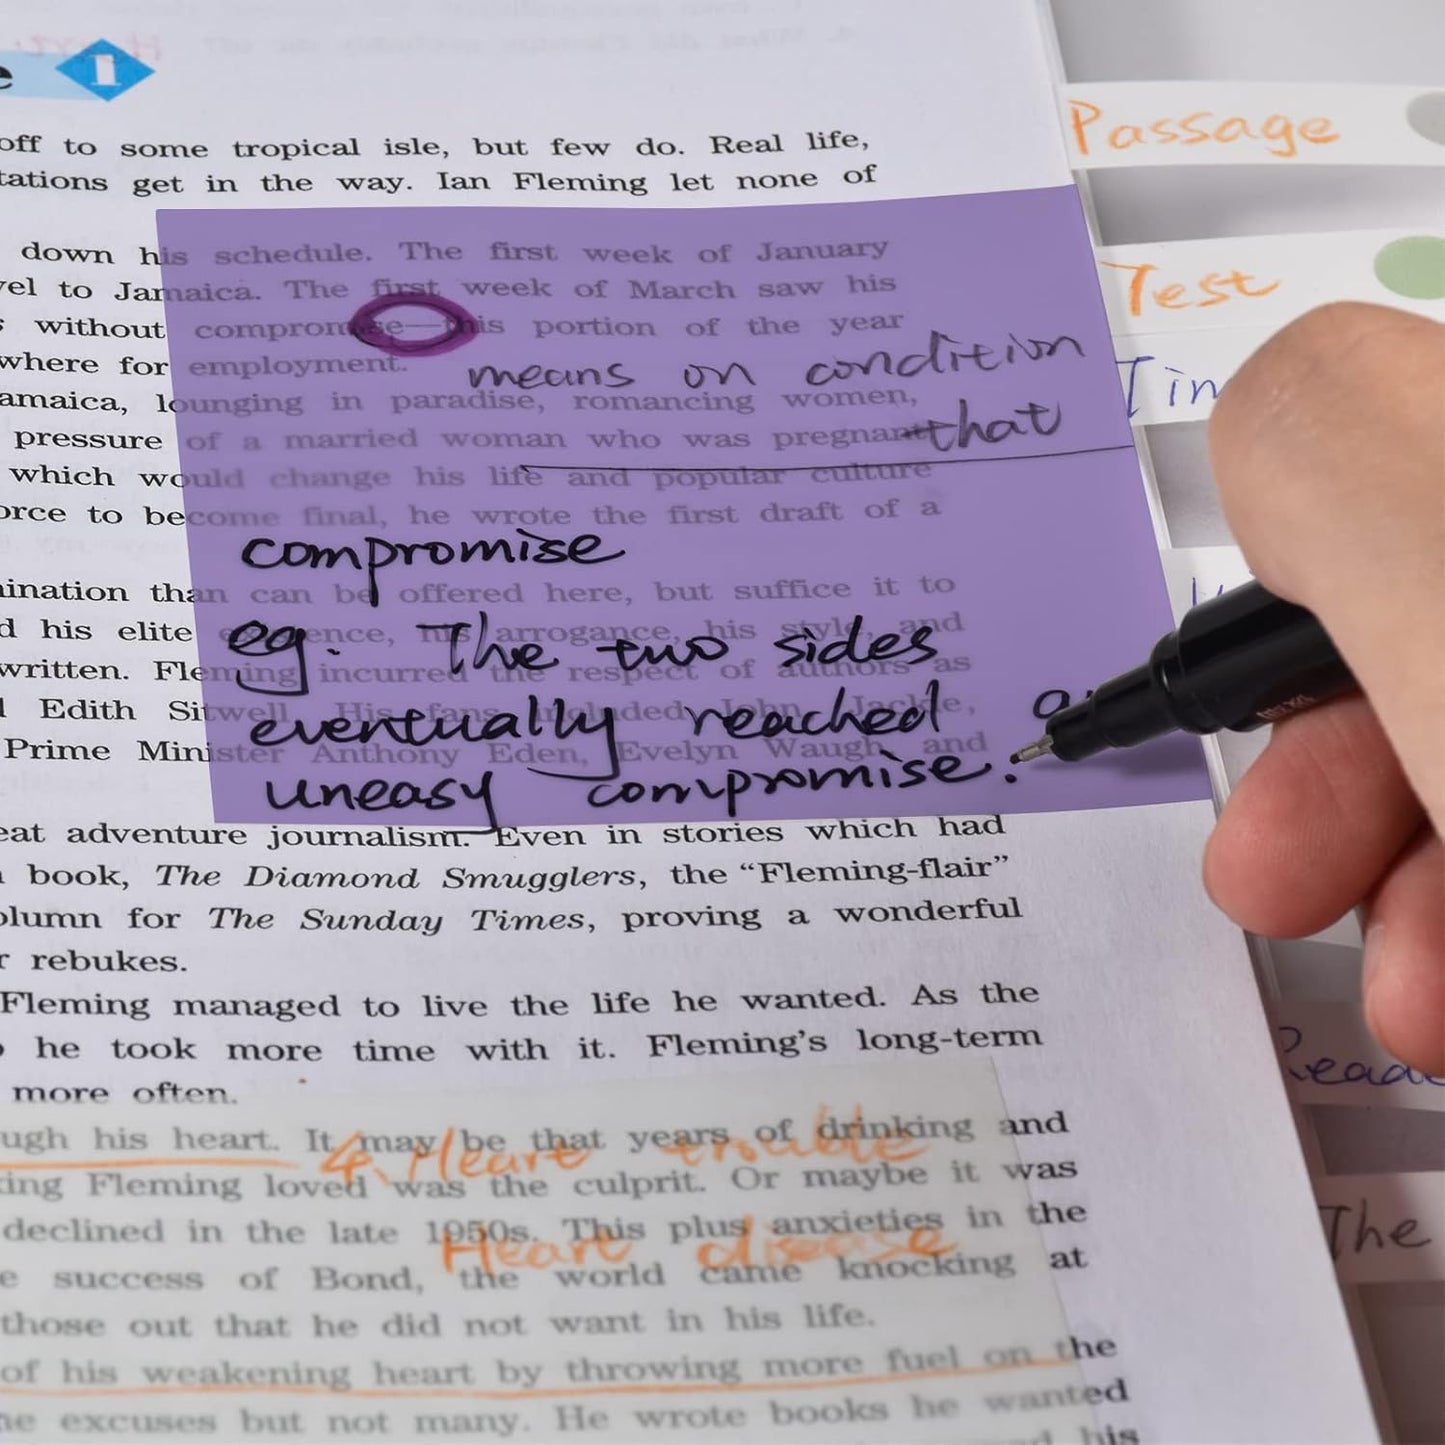 1
off to some tropical isle, but few do. Real life,
get in the way. Ian Fleming let none of
down his schedule. The first week of January
to Jamaica. The first week of March saw his
without compromise—this portion of the year
where for employment.
means on condition
lounging in paradise, romancing women,
pressure of a married woman who was pregnant
that
which would change his life and popular culture
to become final, he wrote the first draft of a
compromise
than can be offered here, but suffice it to
his elite existence, his arrogance, his style, and
eg. The two sides
written. Fleming incurred the respect of authors as
Edith Sitwell. His fans included John Jackie,
eventually reached a
Prime Minister Anthony Eden, Evelyn Waugh, and
uneasy compromise.
adventure journalism. Even in stories which had
book, The Diamond Smugglers, the “Fleming-flair”
for The Sunday Times, proving a wonderful
rebukes.
Fleming managed to live the life he wanted. As the
he took more time with it. Fleming's long-term
more often.
his heart. It may be that years of drinking and
4. Heart trouble
Fleming loved was the culprit. Or maybe it was
declined in the late 1950s. This plus anxieties in the
Heart disease
success of Bond, the world came knocking at
those out that he did not want in his life.
of his weakening heart by throwing more fuel on the
excuses but not many. He wrote books he wanted
his
Passage
Test
The